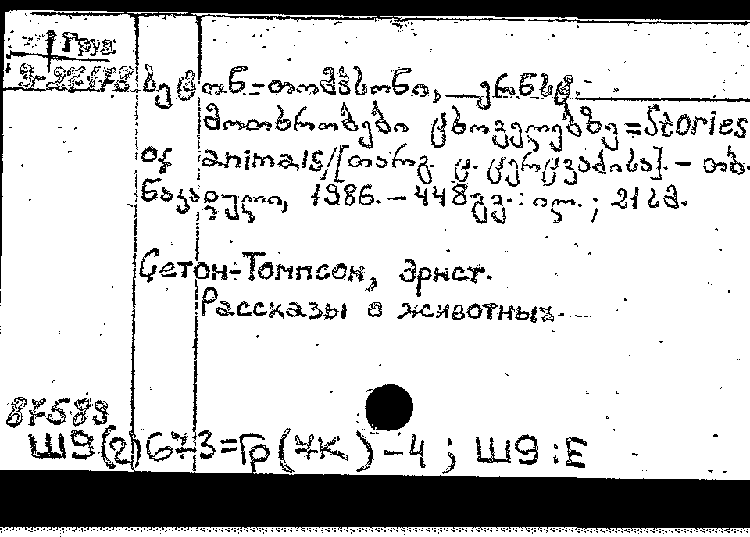 Груз
9-27178
სეტონ-თომპსონი, ერნსტ.
მოთხრობები ცხოველებზე = Stories
of animals/[თარგ. ც. ცერცვაძისა]. - თბ.
ნაკადული, 1986. - 448 გვ. : ილ. ; 21 სმ.
Сетон-Томпсон, Эрнст.
Рассказы о животных.
87583
Ш9(2)673=Гр(7К)-4 ; Ш9:Е